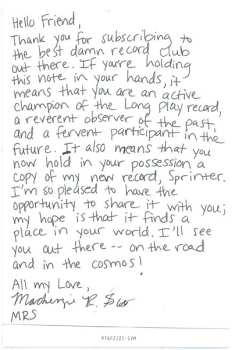 Hello Friend,
Thank you for subscribing to
the best damn record club
out there. If you're holding
this note in your hands, it
means that you are an active
champion of the Long Play record,
a reverent observer of the past,
and a fervent participant in the
future. It also means that you
now hold in your possession a
copy of my new record, Sprinter.
I'm so pleased to have the
opportunity to share it with you;
my hope is that it finds a
place in your world. I'll see
you out there -- on the road
and in the cosmos!
All my Love,
Mackenzie R. Scott
MRS